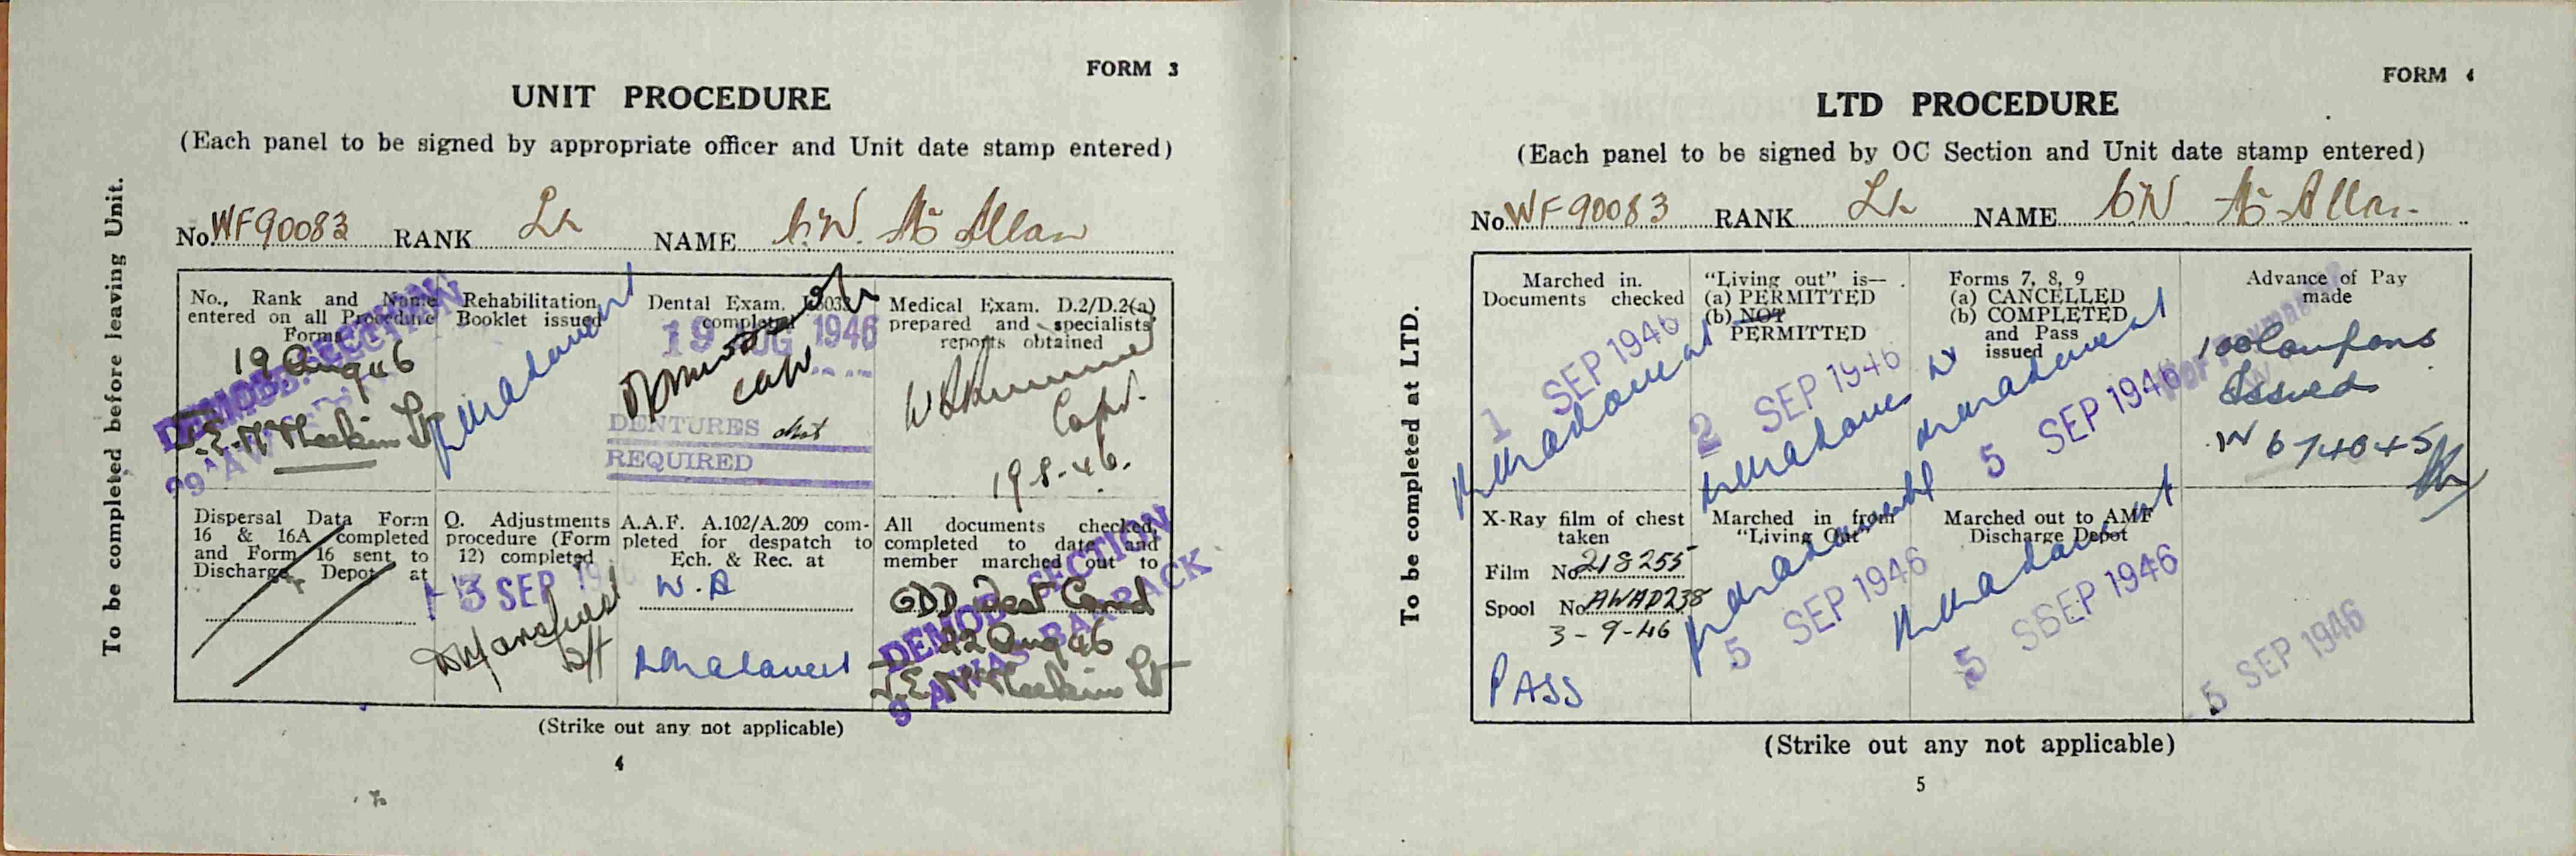 FORM 3
UNIT PROCEDURE
(Each panel to be signed by appropriate officer and Unit date stamp entered)
To be completed before leaving Unit.
No. WF90083 RANK Lt NAME C.W. McAllan
No., Rank and Name
entered on all Procedure
Forms
19 Aug 46
DEMOB. SECTION
Lt
Rehabilitation
Booklet issued
Dental Exam.
completed
19 AUG 1946
Capt
DENTURES not
REQUIRED
Medical Exam. D.2/D.2(a)
prepared and specialists'
reports obtained
Capt.
19-8-46.
Dispersal Data Form
16 & 16A completed
and Form 16 sent to
Discharge Depot at
Q. Adjustments
procedure (Form
12) completed
3 SEP
A.A.F. A.102/A.209 com-
pleted for despatch to
Ech. & Rec. at
W.A
All documents checked,
completed to date and
member marched out to
GDD West Comd
22 Aug 46
DEMOB. SECTION
AWAS BARRACK
Lt
(Strike out any not applicable)
4
FORM 4
LTD PROCEDURE
(Each panel to be signed by OC Section and Unit date stamp entered)
To be completed at LTD.
No. WF90083 RANK Lt NAME CW McAllan
Marched in.
Documents checked
1 SEP 1946
"Living out" is—
(a) PERMITTED
(b) NOT
PERMITTED
2 SEP 1946
Forms 7, 8, 9
(a) CANCELLED
(b) COMPLETED
and Pass
issued
5 SEP 1946
Advance of Pay
made
100 Coupons
Issued
W 674045
X-Ray film of chest
taken
Film No. 218255
Spool No. AWAD238
3-9-46
PASS
Marched in from
"Living Out"
5 SEP 1946
Marched out to AMF
Discharge Depot
5 SEP 1946
5 SEP 1946
(Strike out any not applicable)
5